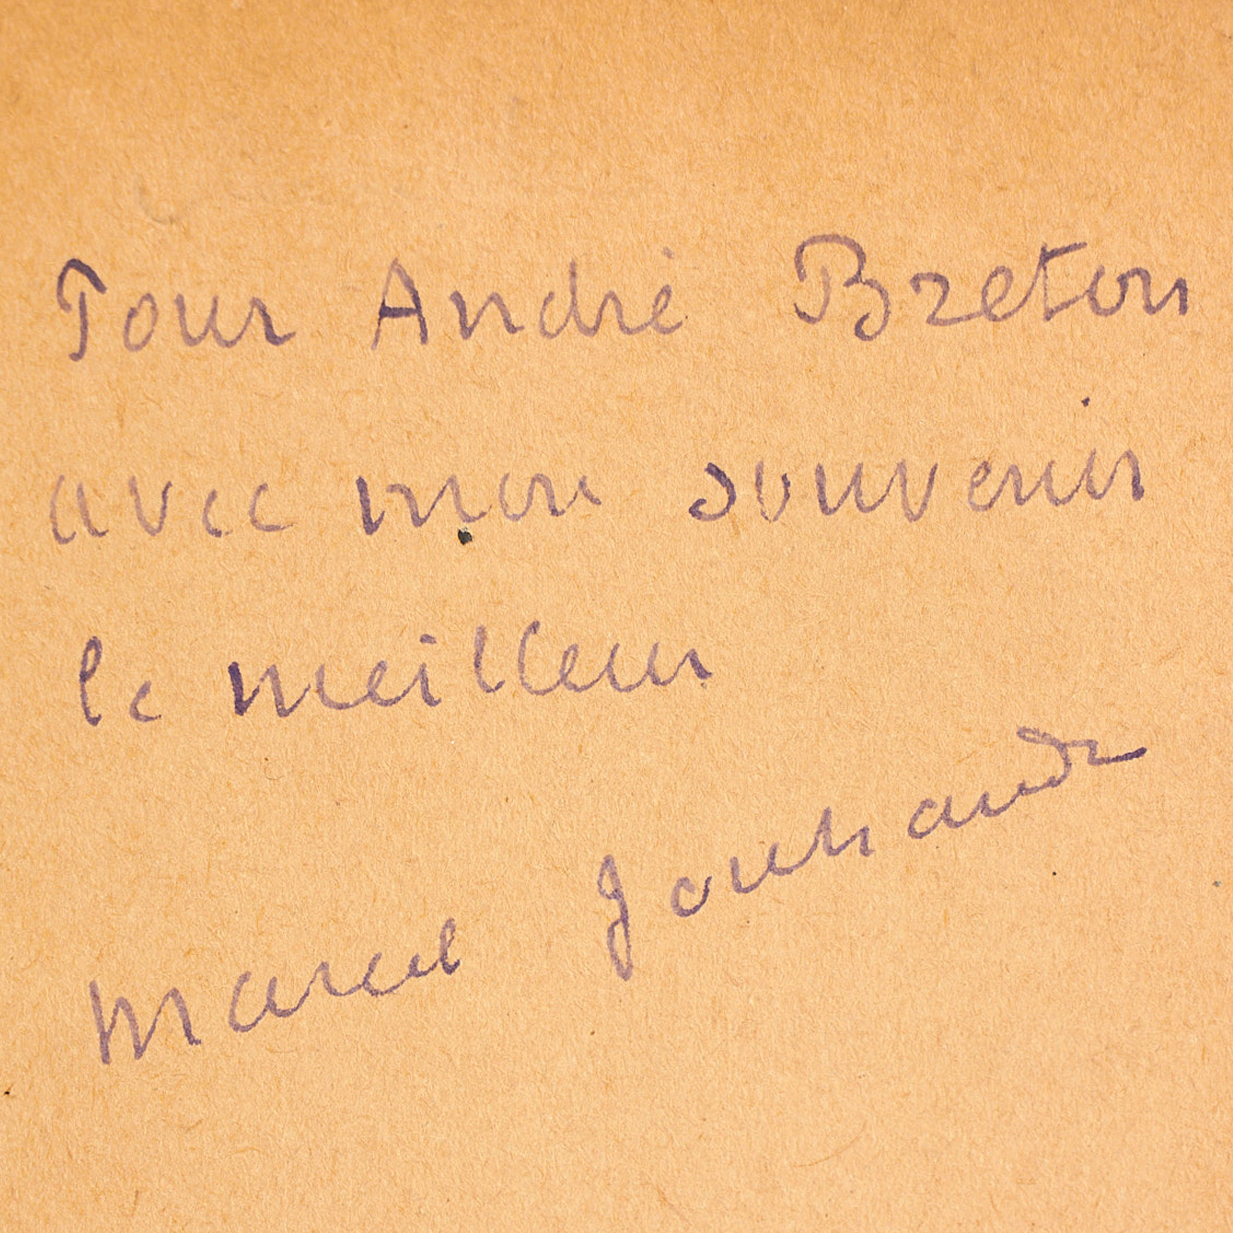 Pour André Breton
avec mon souvenir
le meilleur
Marcel Jouhandeau